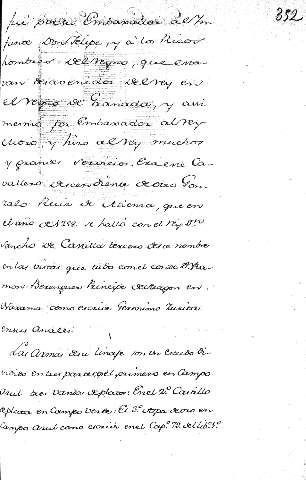 352
fué por su Embaxador al Yn-
fante Don Felipe, y á los Ricos
hombres del Reyno, que esta-
van desavenidos del rey en
el Reyno de Granada, y asi
mesmo por Embaxador al rey
Moro, y hizo al Rey muchos
y grandes servicios. Era este Ca-
vallero descendiente de otro Gon-
zalo Ruiz de Atienza, que en
el año de se halló con el Rey Dn
Sancho de Castilla tercero deste nombre
en las vistas que tubo con el conde Dn Ra-
mon Berenguer Principe de Aragon en
Navama como escrive Geronimo Zurita
en sus Anales.
Las Armas deste linaje son un escudo di-
vidido en tres partes, el primero en Campo
Azul tres vandas de plata: En el 2º Castillo
de plata en Campo verde: El 3º Aspa de oro en
Campo Azul como escrive en el Capº 72 del libº 3º